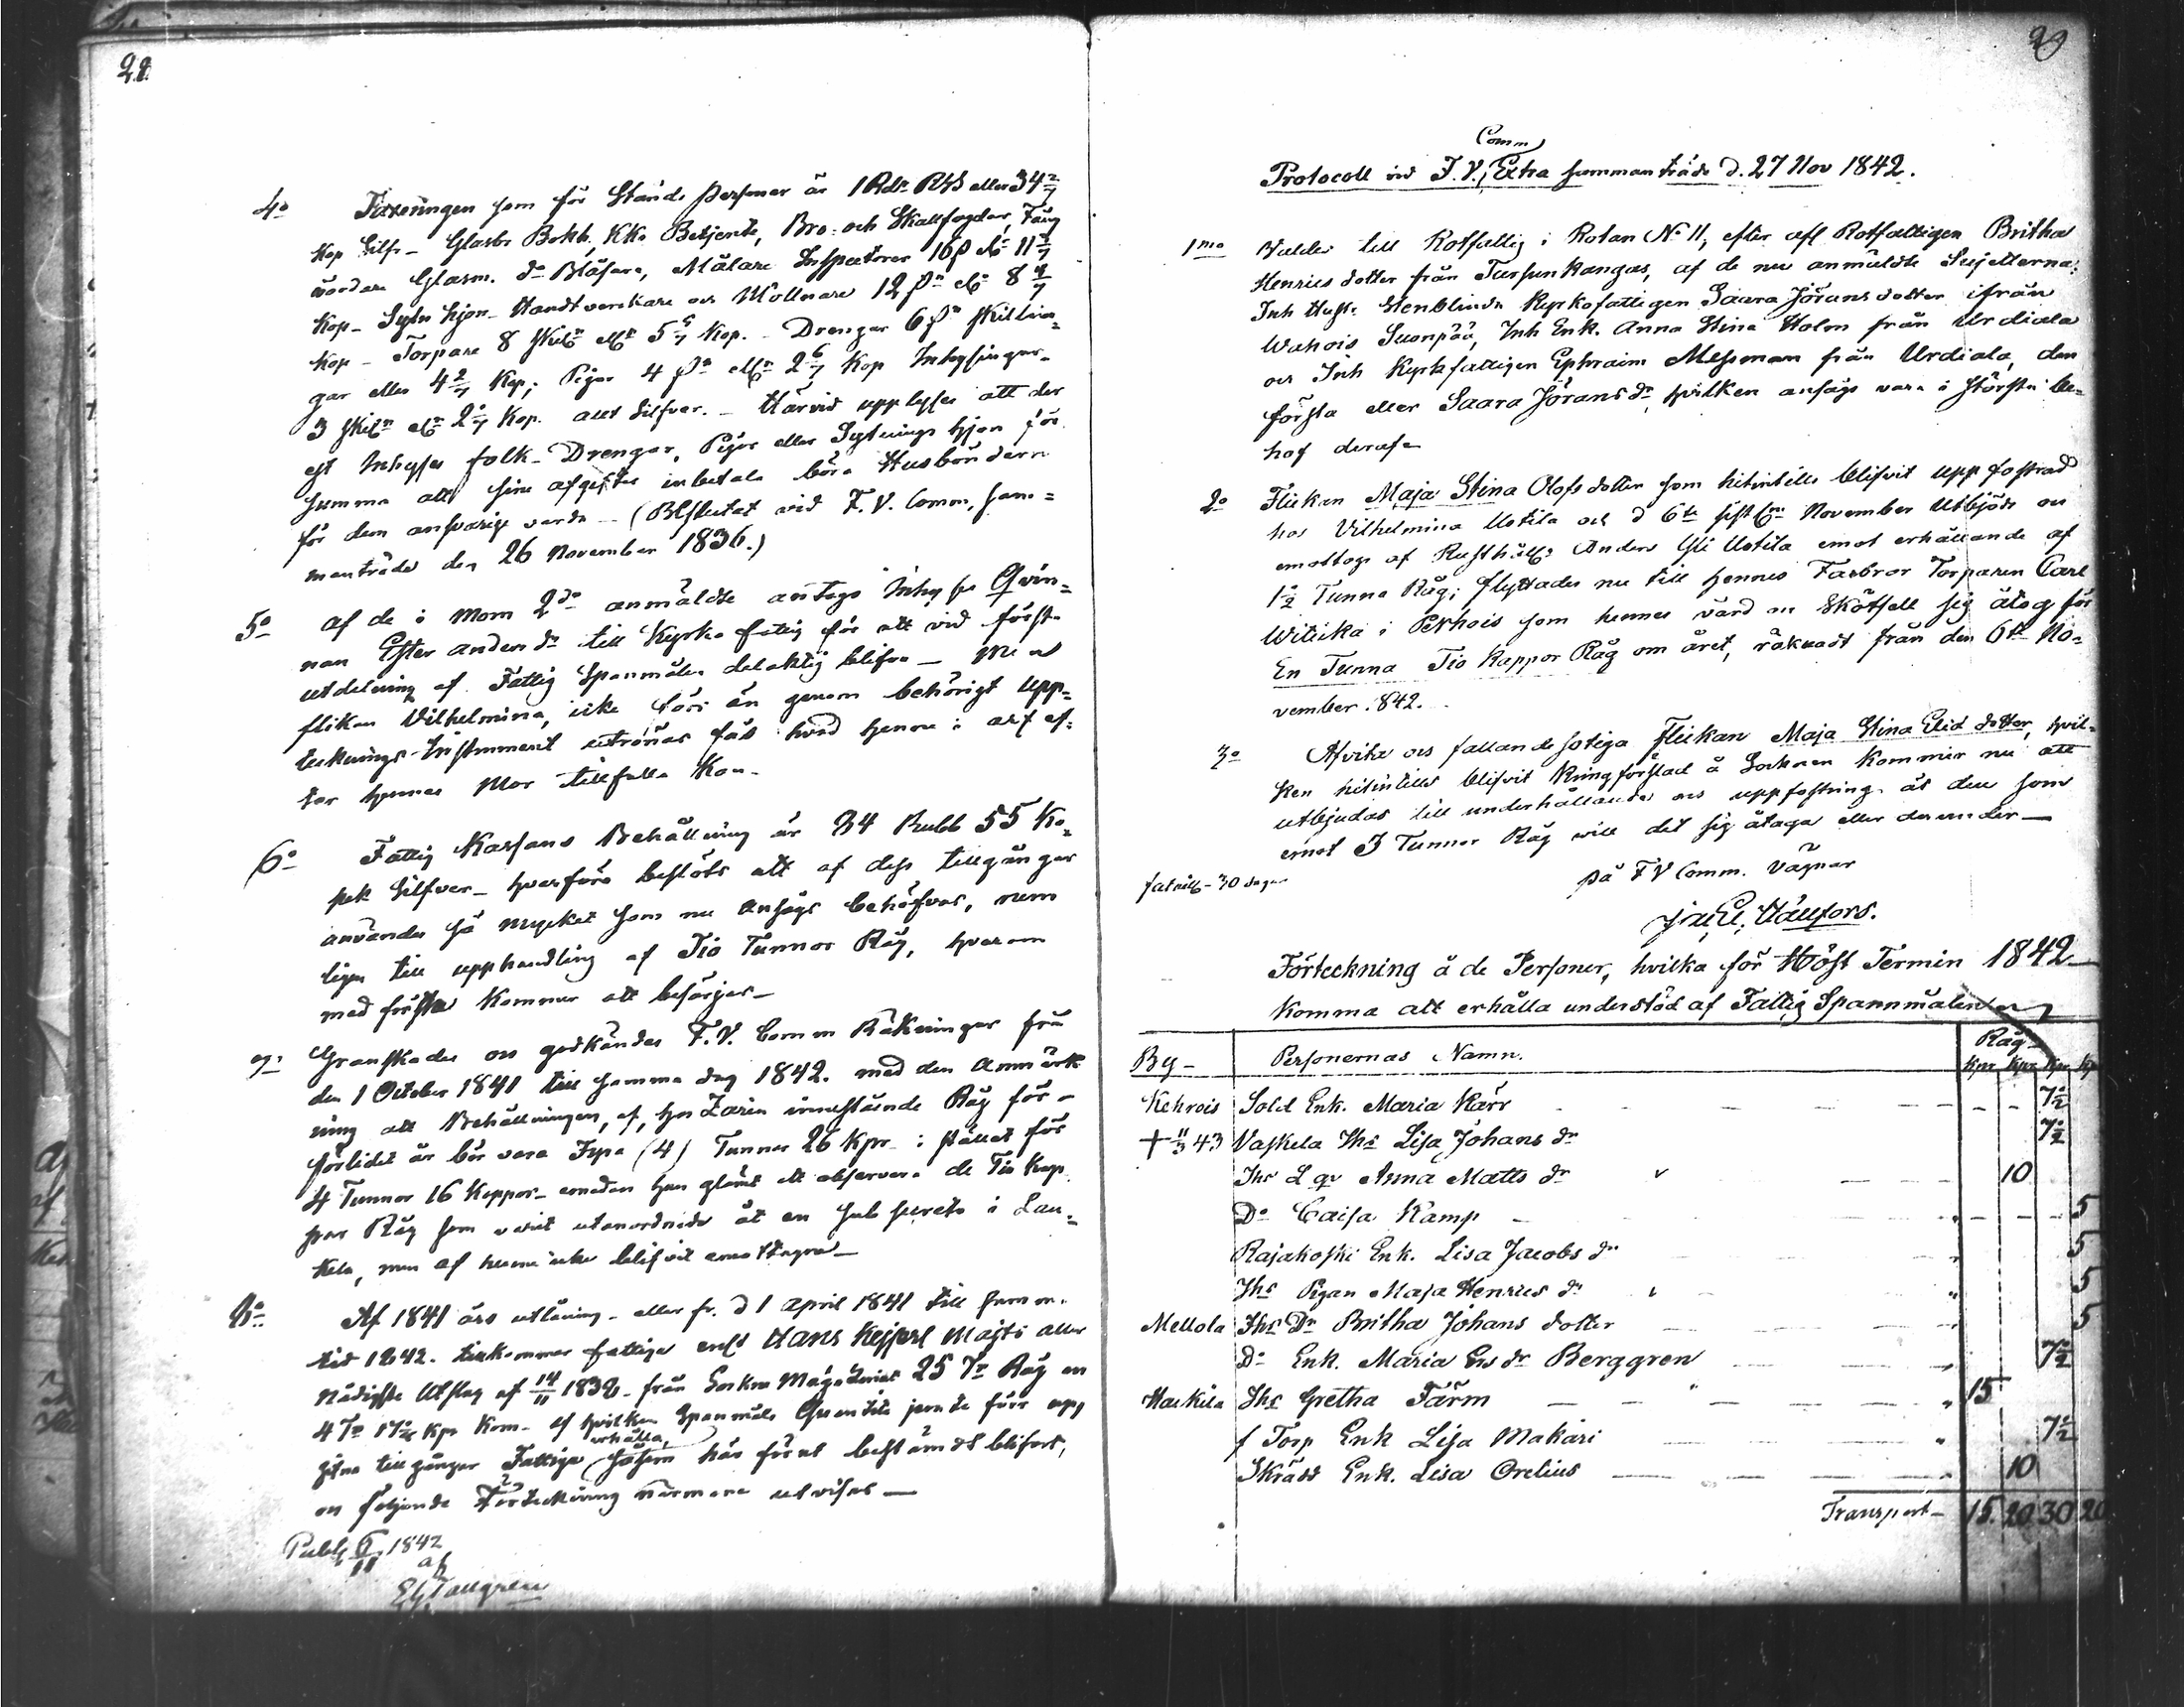 28.
4o Taxeringen som för Stånds personer är 1 Rdr RGS eller 34 2/7
Kop Silfr – Glasbr Bokh., KKo Betjente, Bro- och Skallfogdar, Fång
vårdare Glasm. do Blåsare, Målare Inspectorer 16 β elr 11 3/7
Kop – Sytn hjon – Handtverkare och Mollnare 12 βr elr 8 4/7
Kop – Torpare 8 skilr ellr 5 5/7 Kop. – Drengar 6 βr skillin=
gar eller 4 2/7 Kop; Pigor 4 βr ellr 2 6/7 Kop Inhysingar
3 skilr elr 2 1/7 Kop. allt Silfver. – Härvid upplyses att der
est Inhyses folk – Drengar, Pigor eller Sytnings hjon för
summa att sine afgifter inbetala böra Husbönderne
för dem ansvarige varda – (Beslutat vid F. V. Comm, sam=
manträde den 26 November 1836.)
5o af de i Mom 2do anmäldte antogs Inhyses Qvin=
nan Ester Anders dr till Kyrko fattig för att vid första
utdelning af Fattig Spanmålen delaktig blifva –
flikan Vilhelmina, icke förr än genom behörigt upp=
tecknings-Instrument utrönas fås hvad henne i arf ef=
ter hennes Mor tillfalla Kan –
6o Fattig Kassans Behållning är 34 Rubl 55 Ko=
pek Silfver – hvarföre beslöts att af dess tillgångar
användes så mycket som nu ansågs behöfvas, nem
ligen till upphandling af Tio Tunnor Råg, hvarom
med första Kommer att besörjas –
7o Granskades och godkändes F. V. Comm Räkningar från
den 1 October 1841 till samma dag 1842. med den Anmärk
ning att Behållningen, af, hos Zarin innestående Råg för
förlidet år bör vara Fyra (4) Tunnor 26 Kpr i stället för
4 Tunnor 16 Kappor – emedan han glömt att observera de Tio Kap
par Råg som varit utanordnade åt en i Lau=
kela, men af henne icke blifvit emottagne –
8o Af 1841 års utlåning – eller fr. d 1 April 1841 till samma
tid 1842. tillkommer fattige enl Hans Kejserl Majts aller
Nådigste Utslag af 14/11 1832 – från Sockne Magazinet 25 Tr Råg och
4 Tr 17 Kpr Korn – af hvilken Spanmåls Quantite jemte förr upp
gifna tillgångar Fattige erhålla, såsom här förut bestämdt blifvit,
och följande Förteckning närmare utvisar –
Publ 6/11 1842
af
Tallgren
29
Protocoll vid F. V. Comm Extra sammanträde d. 27 Nov 1842.
1mo Valdes till Rotfattig i Rotan No 11, efter afl Rotfattigen Britha
Henries dotter från Tursunkangas, af de nu anmäldte Sujetterna:
Inh Hust. Stenblinda Kyrkofattigen Saara Jörans dotter ifrån
Wahois Suonpää, Inh Enk. Anna Stina Holm från Urdiala
och Inh Kyrkfattigen Ephraim Messman från Urdiala, den
första eller Saara Jörans dr, hvilken ansågs vara i största be=
hof deraf –
2o Flickan Maja Stina Olofs dotter som hitintills blifvit uppfostrad
hos Vilhelmina Uotila och d 6te sistl November utbjöds och
emottogs af Rusthåll. Anders Yli Uotila emot erhållande af
1 1/2 Tunna Råg; flyttades nu till hennes Farbror Torparen Carl
Witicka i Pekhois som hennes vård och Skötsell sig åtog för
En Tunna Tio Kappor Råg om året, räknadt från den 6te No=
vember 1842.
3o Afvita och fallandesotiga flickan Maja Stina Elid dotter, hvil=
ken hitintills blifvit kringförslad å Socknen kommer nu att
utbjudas till underhållande och uppfostring åt den som
emot 3 Tunnor Råg will det sig åtaga eller derunder –
– 30 dagar
på F V Comm. vägnar
Hällfors.
Förteckning å de Personer, hvilka för Höst Termin 1842
komma att erhålla understöd af Fattig Spannmålen
By – Personernas Namn. Råg
Kpr Kpr Kpr Kp
Kehrois Sold Enk. Maria Kärr 7 1/2
+ 11/3 43 Vaskela Ihs Lisa Johans dr 7 1/2
Ihs L qv Anna Matts dr 10
Do Caisa Kamp 5
Rajakoski Enk. Lisa Jacobs dr 5
Ihs Pigan Maja Henries dr 5
Mellola Ihs Do Britha Johans dotter 5
Do Enk. Maria Ers dr Berggren 7 1/2
Haukila Ihs Gretha Färm 15
f Torp Enk Lisa Makari 7 1/2
Skrädd Enk. Lisa Orelius 10
Transport – 15. 20 30 20